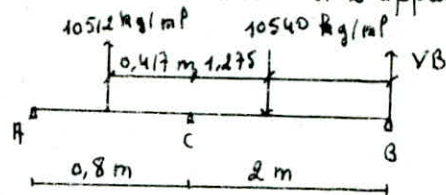 10512 kg/ml 10540 kg/ml
0,417 m 1,275 VB
A C B
0,8 m 2 m